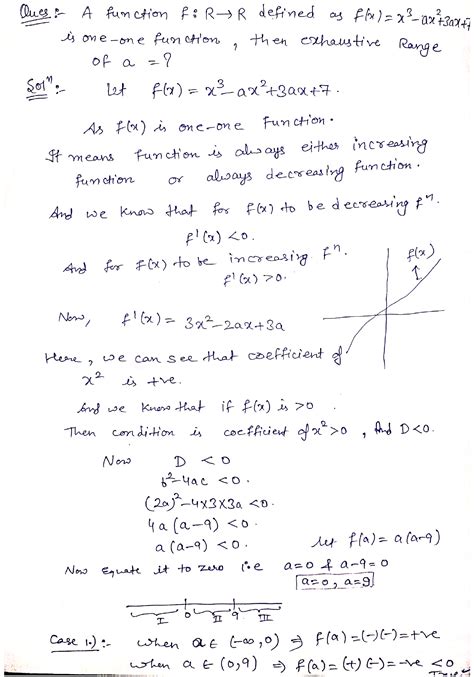 Ques:- A function f: R→R defined as f(x) = x³-ax²+3ax+7
is one-one function, then exhaustive Range
of a = ?
Solⁿ:- Let f(x) = x³-ax²+3ax+7.
As f(x) is one-one function.
It means function is always either increasing
function or always decreasing function.
And we know that for f(x) to be decreasing fⁿ.
f'(x) <0.
And for f(x) to be increasing fⁿ.
f'(x) >0.
f(x)
Now, f'(x) = 3x²-2ax+3a
Here, we can see that coefficient of
x² is +ve.
And we know that if f(x) is >0
Then condition is coefficient of x²>0, And D<0.
Now D <0
b²-4ac <0.
(2a)²-4×3×3a <0.
4a(a-9) <0.
a(a-9) <0.
let f(a) = a(a-9)
Now Equate it to zero i.e a=0 & a-9=0
a=0, a=9
0 9
I II III
Case 1.):- when a ∈ (-∞,0) ⇒ f(a) = (-)(-) = +ve
when a ∈ (0,9) ⇒ f(a) = (+)(-) = -ve <0